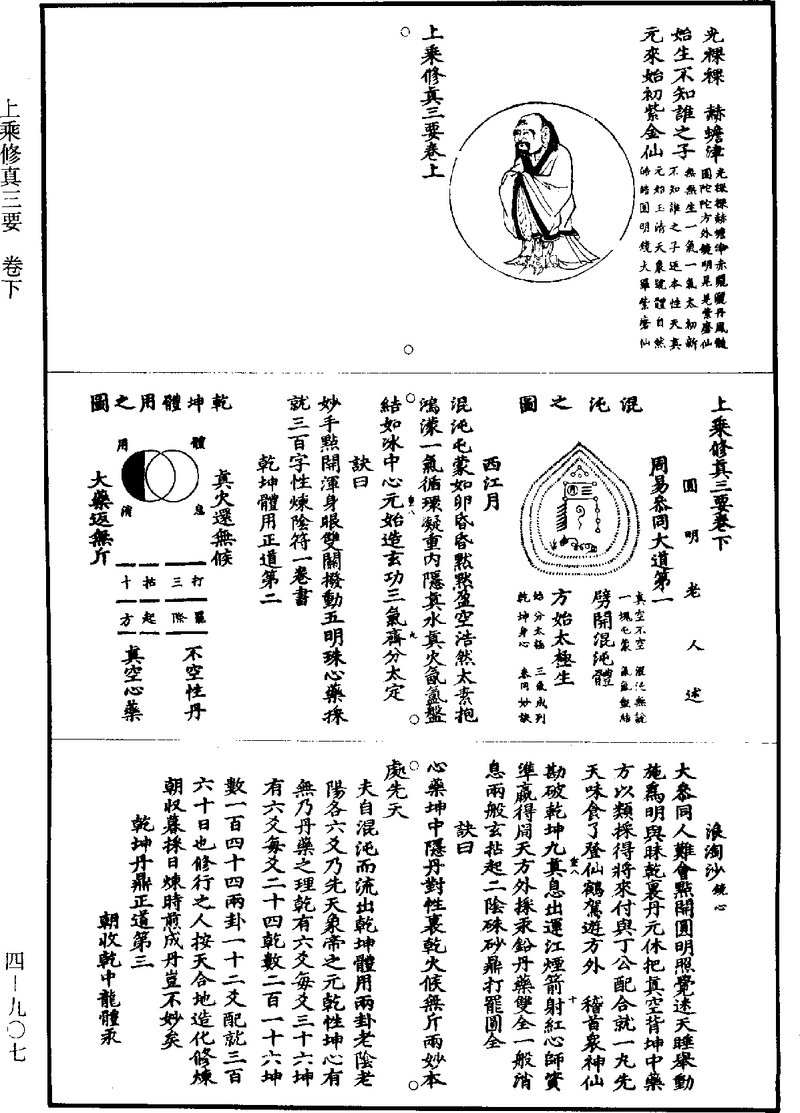 上乘修真三要 卷下
四-九〇七
光稞稞 赫蟾津
始生不知誰之子
元來始初紫金仙
光稞稞赫蟾津赤颰颰丹鳳髓
圓陀陀方外鏡明晃晃紫磨仙
無無生一氣一氣太初新
不知誰之子返本性天真
元郍玉清天裊號體自然
皓皓圓明鏡大羅紫磨仙
上乘修真三要卷上
上乘修真三要卷下
圓明老人述
周易叅同大道第一
混沌之圖
真空不空 混沌無說
一塊屯蒙 氤氳盤結
劈開混沌體
方始太極生
始分太極 三氣成列
乾坤身心 叅同妙訣
西江月
混沌屯蒙如卵昏昏默默盈空浩然太素抱
鴻濛一氣循環凝重內隱真水真火氤氳盤
結如冰中心元始造玄功三氣齊分太定
訣曰
妙手點開渾身眼雙關撥動五明珠心藥採
就三百字性煉陰符一卷書
乾坤體用正道第二
乾坤體用之圖
真火還無候
體
息
用
消
大藥返無斤
打三拈十
罷際起方
不空性丹
真空心藥
浪淘沙 鏡心
大叅同人難會點開圓明照覺迷天睡舉動
施為明與昧乾裏丹元休把真空背坤中藥
方以類採得將來付與丁公配合就一九先
天味食了登仙鶴駕遊方外 稽首衆神仙
勘破乾坤九真息出運江煙箭射紅心師資
準贏得周天方外採汞鉛丹藥雙全一般消
息兩般玄拈起二陰硃砂鼎打罷圓全
訣曰
心藥坤中隱丹對性裏乾火候無斤兩妙本
處先天
夫自混沌而流出乾坤體用兩卦老陰老
陽各六爻乃先天象帝之元乾性坤心有
無乃丹藥之理乾有六爻每爻三十六坤
有六爻每爻二十四乾數二百一十六坤
數一百四十四兩卦一十二爻配就三百
六十日也修行之人按天合地造化修煉
朝收暮採日煉時煎成丹豈不妙矣
乾坤丹鼎正道第三
朝收乾中龍體汞